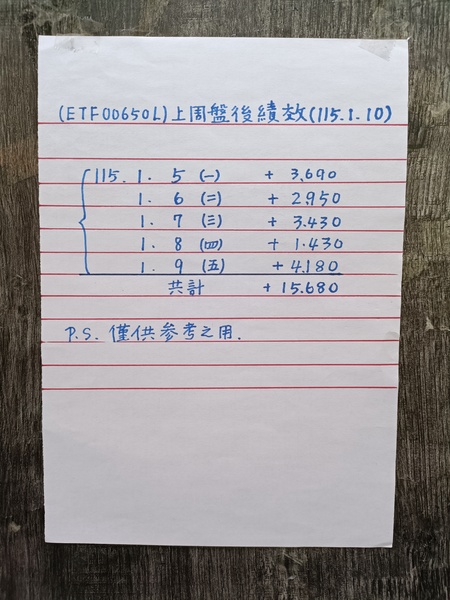 (ETF00650L)上周盤後績效(115.1.10)
115. 1. 5 (一) + 3.690
1. 6 (二) + 2.950
1. 7 (三) + 3.430
1. 8 (四) + 1.430
1. 9 (五) + 4.180
共計 + 15.680
P.S. 僅供參考之用.